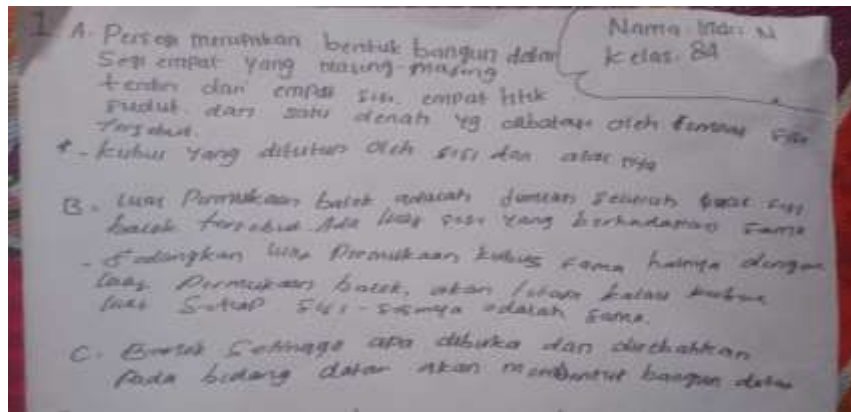 Nama: Indri N
Kelas: 8A
1 A. Persegi merupakan bentuk bangun datar
Segi empat yang masing-masing
terdiri dari empat sisi. empat titik
sudut. dan satu denah yg dibatasi oleh empat sisi
tersebut.
- kubus yang ditutup oleh sisi dan alas nya
B. Luas Permukaan balok adalah jumlah seluruh luas sisi
balok tersebut. Ada luas sisi yang berhadapan sama
- Sedangkan luas Permukaan kubus sama halnya dengan
luas Permukaan balok, akan tetapi kalau kubus
luas Setiap sisi-sisinya adalah sama.
C. Sehingga apa dibuka dan direbahkan
Pada bidang datar akan membentuk bangun datar